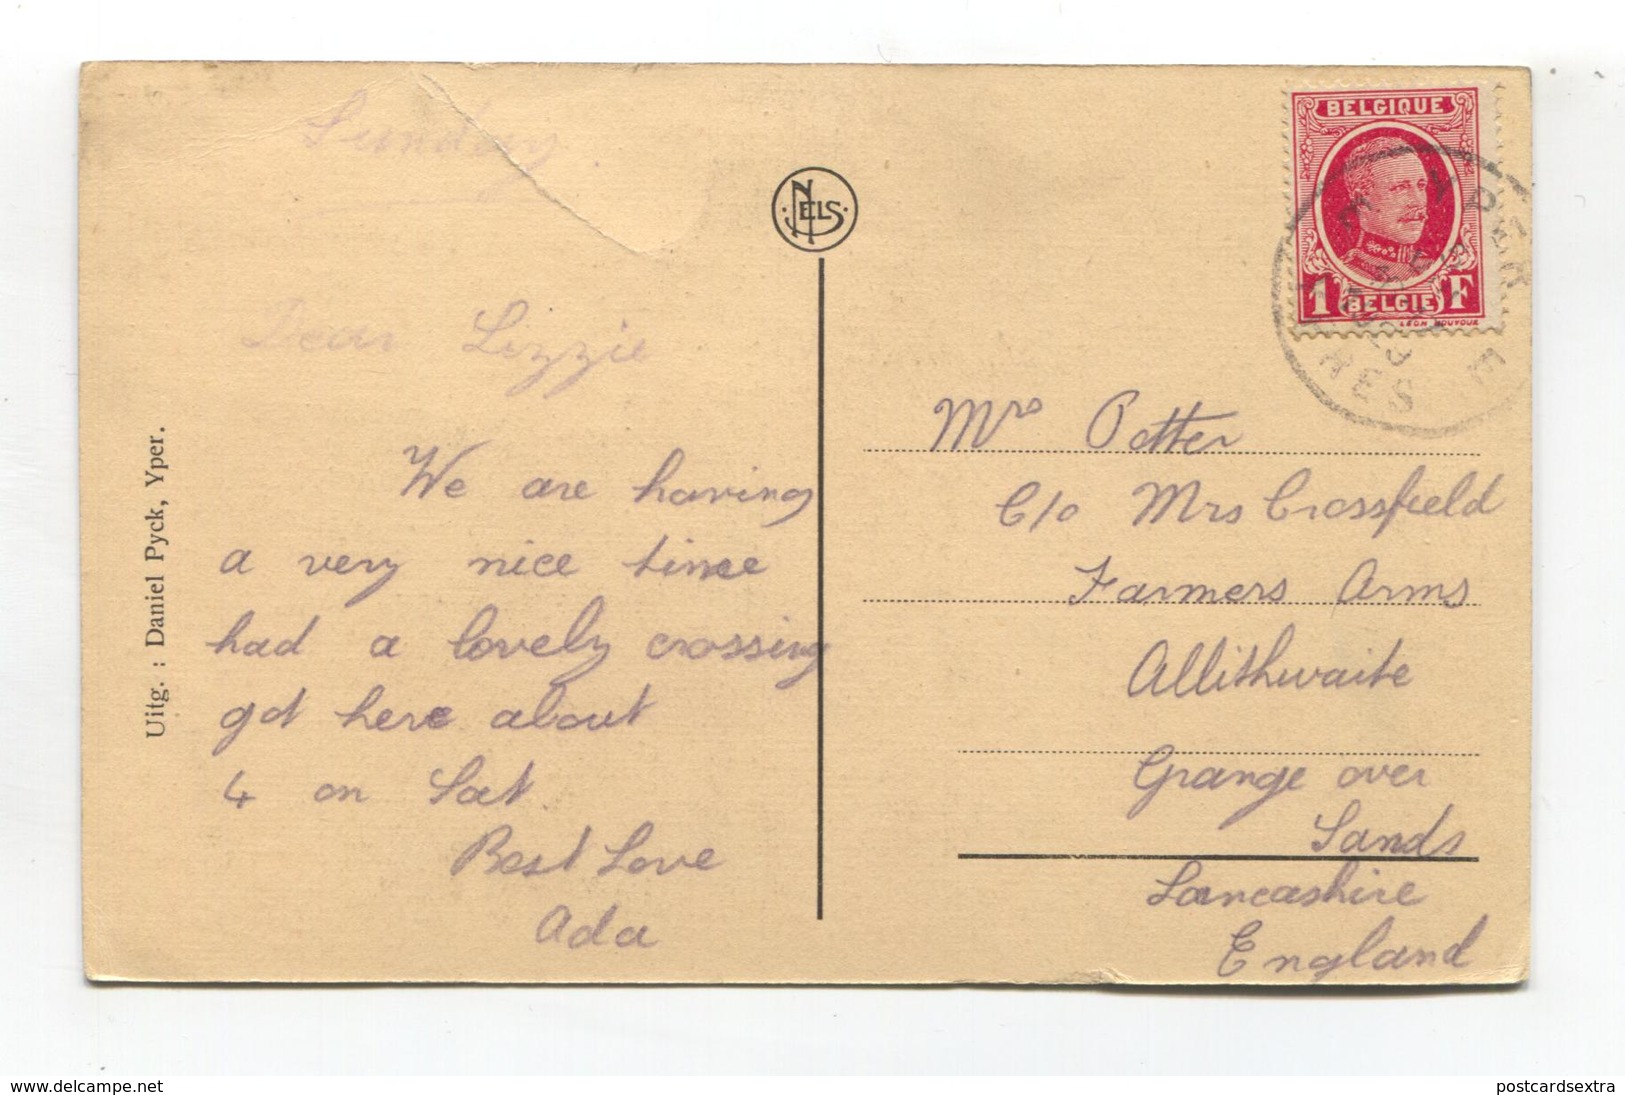 Sunday.
Dear Lizzie
We are having
a very nice time
had a lovely crossing
got here about
4 on Sat.
Best Love
Ada
Uitg. : Daniel Pyck, Yper.
NELS
BELGIQUE
1 BELGIË F
YPER
Mrs Potter
C/o Mrs Crossfield
Farmers Arms
Allithwaite
Grange over
Sands
Lancashire
England
www.delcampe.net
postcardsextra